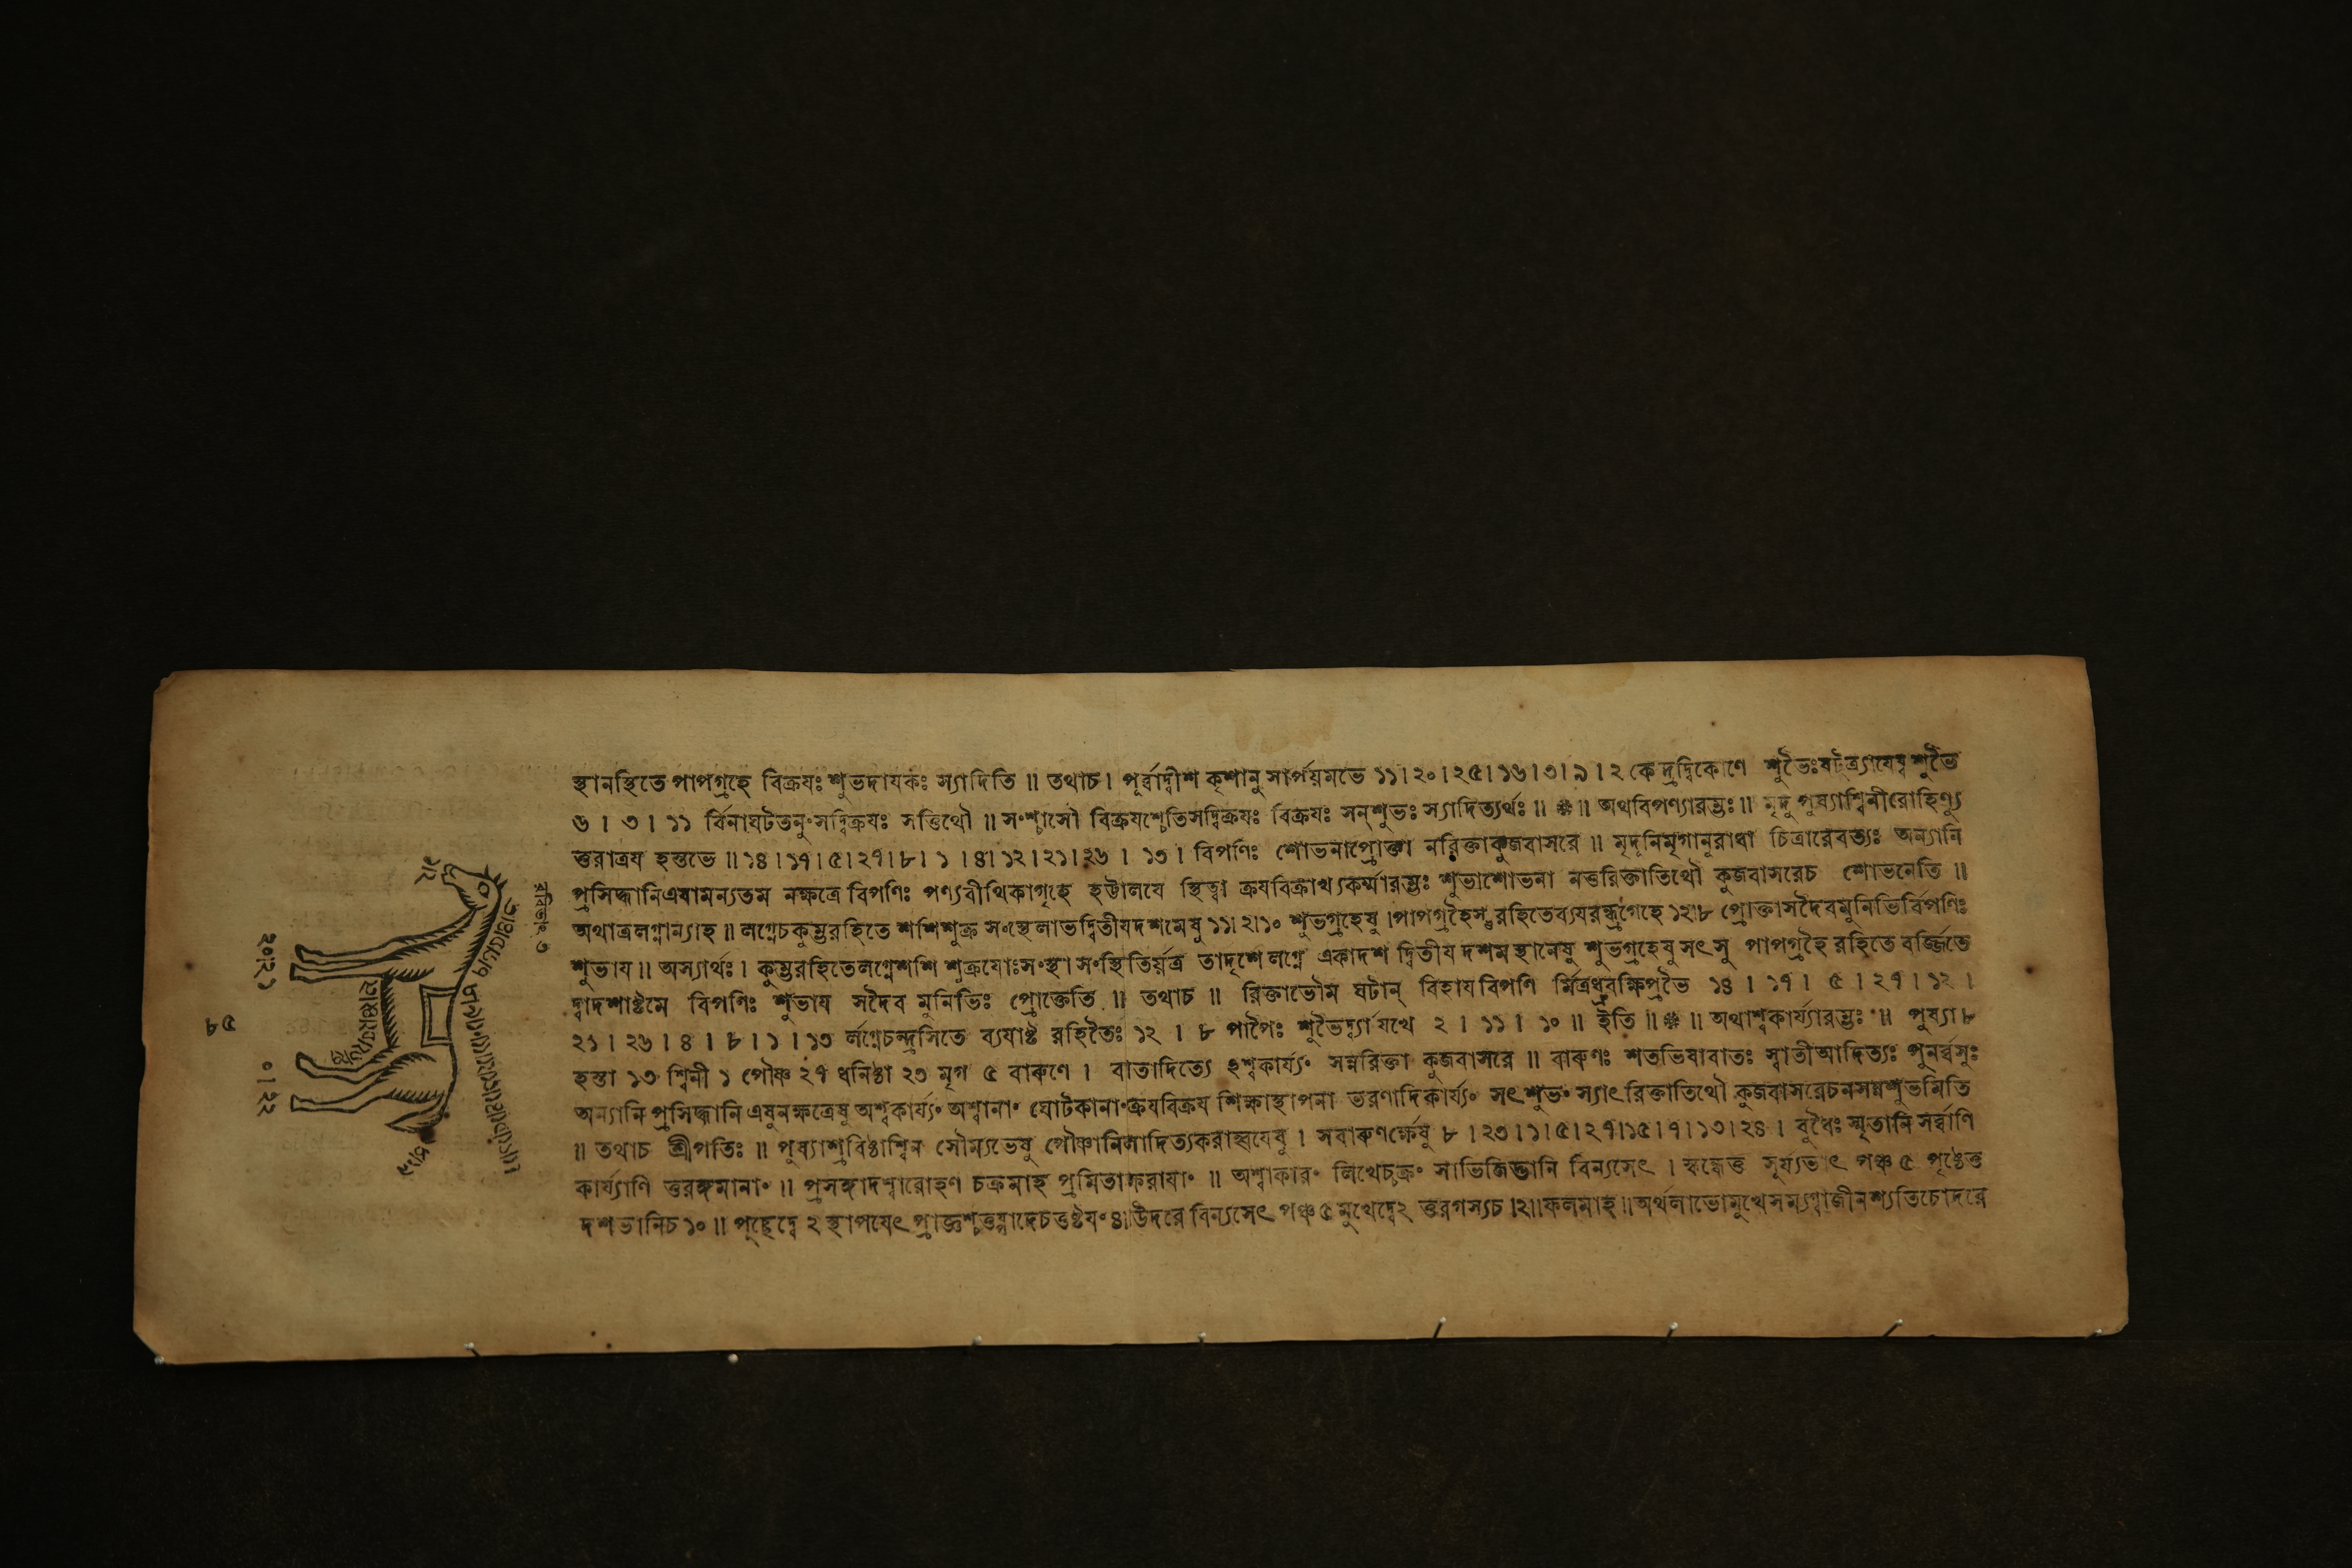 স্থানস্থিতে পাপগ্রহে বিক্রযঃ শুভদাযকঃ স্যাদিতি ॥ তথাচ । পূর্ব্বাদ্বীশ কৃশানু সার্পযমভে ১১।২০।২৫।১৬।৩।৯।২ কেন্দ্রত্রিকোণে শুভৈঃষট্ত্র্যাযেষ্বশুভৈ
৬ । ৩ । ১১ র্বিনাঘটতনুংসদ্বিক্রযঃ সত্তিথৌ ॥ সংশ্চাসৌ বিক্রযশ্চেতিসদ্বিক্রযঃ বিক্রযঃ সন্শুভঃ স্যাদিত্যর্থঃ ॥ ॥ অথবিপণ্যারম্ভঃ ॥ মৃদু পুষ্যাশ্বিনীরোহিণ্যু
ত্তরাত্রয হস্তভে ॥১৪।১৭।৫।২৭।৮। ১ ।৪।১২।২১।২৬ । ১৩ । বিপণিঃ শোভনাপ্রোক্তা নরিক্তাকুজবাসরে ॥ মৃদূনিমৃগানুরাধা চিত্রারেবত্যঃ অন্যানি
প্রসিদ্ধানিএষামন্যতম নক্ষত্রে বিপণিঃ পণ্যবীথিকাগৃহে হট্টালযে স্থিত্বা ক্রযবিক্রাখ্যকর্ম্মারম্ভঃ শুভাশোভনা নতুরিক্তাতিথৌ কুজবাসরেচ শোভনেতি ॥
অথাত্রলগ্নান্যাহ ॥ লগ্নেচকুম্ভরহিতে শশিশুক্র সংস্থেলাভদ্বিতীযদশমেষু ১১।২।১০ শুভগ্রহেষু ।পাপগ্রহৈস্তুরহিতেব্যযরন্ধ্রগেহে ১২।৮ প্রোক্তাসদৈবমুনিভির্বিপণিঃ
শুভায ॥ অস্যার্থঃ । কুম্ভরহিতেলগ্নেশশি শুক্রযোঃসংস্থা সংস্থিতির্যত্র তাদৃশে লগ্নে একাদশ দ্বিতীয দশম স্থানেষু শুভগ্রহেষু সৎ সু পাপগ্রহৈ রহিতে বর্জ্জিতে
দ্বাদশাষ্টমে বিপণিঃ শুভায সদৈব মুনিভিঃ প্রোক্তেতি ॥ তথাচ ॥ রিক্তাভৌম ঘটান্ বিহায বিপণি র্মিত্রধ্রুবক্ষিপ্রভৈ ১৪ । ১৭ । ৫ । ২৭ । ১২ ।
২১ । ২৬ । ৪ । ৮ । ১ । ১৩ র্লগ্নেচন্দ্রসিতে ব্যযাষ্ট রহিতৈঃ ১২ । ৮ পাপৈঃ শুভৈর্দ্ব্যাযখে ২ । ১১ । ১০ ॥ ইতি ॥ ॥ অথাশ্বকার্য্যারম্ভঃ ॥ পুষ্যা ৮
হস্তা ১৩ শ্বিনী ১ পৌষ্ণ ২৭ ধনিষ্ঠা ২৩ মৃগ ৫ বারুণে । বাতাদিত্যে ঽশ্বকার্য্যং সন্নরিক্তা কুজবাসরে ॥ বারুণঃ শতভিষাবাতঃ স্বাতীআদিত্যঃ পুনর্ব্বসুঃ
অন্যানি প্রসিদ্ধানি এষুনক্ষত্রেষু অশ্বকার্য্যং অশ্বানাং ঘোটকানাংক্রযবিক্রয শিক্ষাস্থাপনা ভরণাদিকার্য্যং সৎশুভংস্যাৎ রিক্তাতিথৌ কুজবাসরেচনসন্নশুভমিতি
॥ তথাচ শ্রীপতিঃ ॥ পুষ্যাশ্রবিষ্ঠাশ্বিন সৌম্যভেষু পৌষ্ণানিলাদিত্যকরাহ্বযেষু । সবারুণর্ক্ষেষু ৮ ।২৩।১।৫।২৭।১৫।৭।১৩।২৪ । বুধৈঃ স্মৃতানি সর্ব্বাণি
কার্য্যাণি তুরঙ্গমানাং ॥ প্রসঙ্গাদশ্বারোহণ চক্রমাহ প্রমিতাক্ষরাযাং ॥ অশ্বাকারং লিখেচ্চক্রং সাভিজিদ্ভানি বিন্যসেৎ । স্কন্ধেতু সূর্য্যভাৎ পঞ্চ ৫ পৃষ্ঠেতু
দশভানিচ ১০ ॥ পুচ্ছেদ্বে ২ স্থাপযেৎ প্রাজ্ঞশ্চতুষ্পাদেচতুষ্টযং ৪।উদরে বিন্যসেৎ পঞ্চ ৫ মুখেদ্বে২ তুরগস্যচ ।২॥ফলমাহ॥অর্থলাভোমুখেসম্যগ্বাজীনশ্যতিচোদরে
৫৮